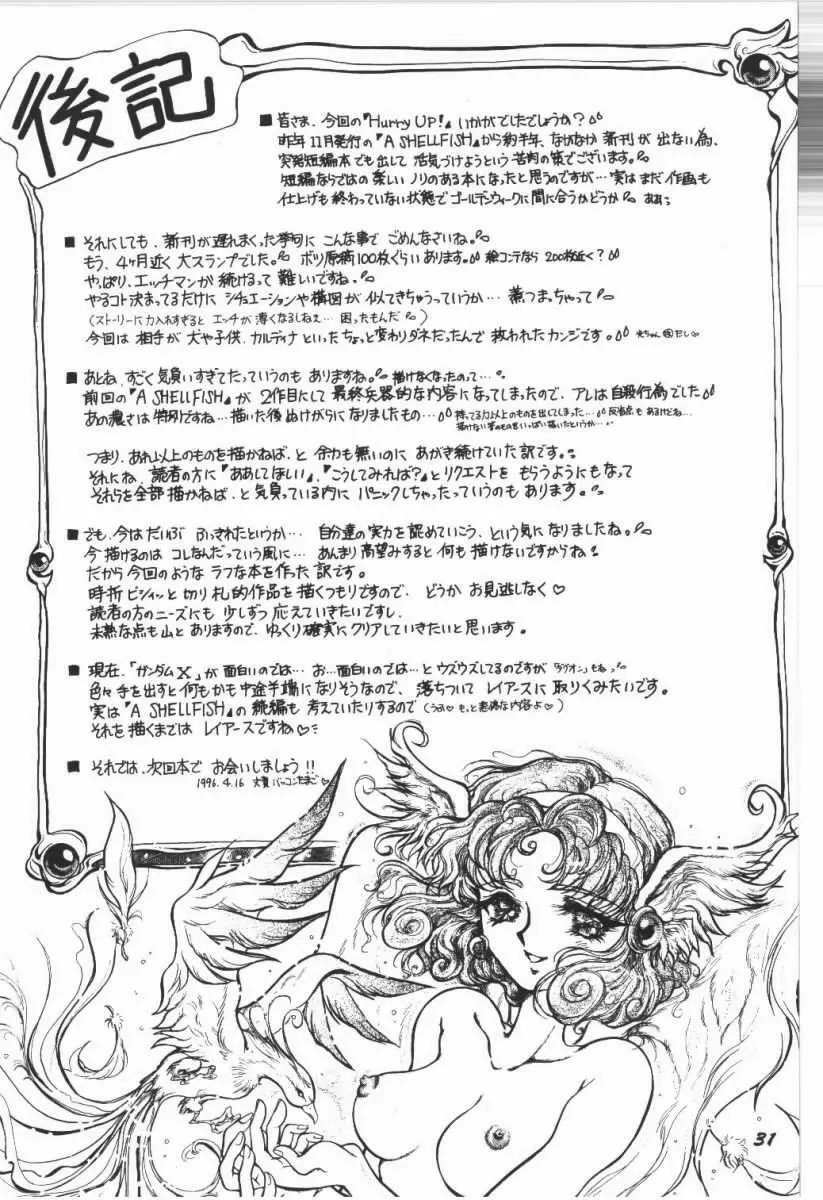 後記
■皆さま、今回の『Hurry UP!』いかがでしたでしょうか?
昨年11月発行の『A SHELLFISH』から約半年、なかなか新刊が出ない為、
突発短編本でも出して活気づけようという苦肉の策でございます。
短編ならではの楽しいノリのある本になったと思うのですが…実はまだ作画も
仕上げも終わっていない状態でゴールデンウィークに間に合うかどうか。ああ
■それにしても、新刊が遅れまくった挙句にこんな事でごめんなさいね。
もう、4ヶ月近く大スランプでした。ボツ原稿100枚ぐらいあります。絵コンテなら200枚近く?
やっぱり、エッチマンガ続けるって難しいですね。
やるコト決まってるだけにシチュエーションや構図が似てきちゃうっていうか…煮つまっちゃって
(ストーリーに力入れすぎるとエッチが薄くなるしねぇ…困ったもんだ)
今回は相手が犬や子供、カルディナといったちょっと変わりダネだったんで救われたカンジです。
■あとね、すごく気負いすぎてたっていうのもありますね。描けなくなったのって…
前回の『A SHELLFISH』が2作目にして最終兵器的な内容になってしまったので、アレは自殺行為でした
あの濃さは特別ですね…描いた後ぬけがらになりましたもの…持ってる力以上のものを出してしまった…反省点もあるけどね…
つまり、あれ以上のものを描かねば、と余力も無いのにあがき続けていた訳です。
それにね、読者の方に『ああしてほしい』、『こうしてみれば?』とリクエストをもらうようにもなって
それらを全部描かねば、と気負っている内にパニックしちゃったっていうのもあります。
■でも、今はだいぶふっきれたというか…自分達の実力を認めていこう、という気になりましたね。
今描けるのはコレなんだっていう風に…あんまり高望みすると何も描けないですからね
だから今回のようなラフな本を作った訳です。
時折ビシィッと切り札的作品を描くつもりですので、どうかお見逃しなく♡
読者の方のニーズにも少しずつ応えていきたいですし、
未熟な点も山とありますので、ゆっくり確実にクリアしていきたいと思います。
■現在、「ガンダムX」が面白いのでは…お…面白いのでは…とウズウズしてるのですが
色々手を出すと何もかも中途半端になりそうなので、落ちついてレイアースに取りくみたいです。
実は『A SHELLFISH』の続編も考えていたりするので(うふ♡もっと悪辣な内容よ♡)
それを描くまではレイアースですね♡
■それでは、次回本でお会いしましょう!!
1996.4.16
31